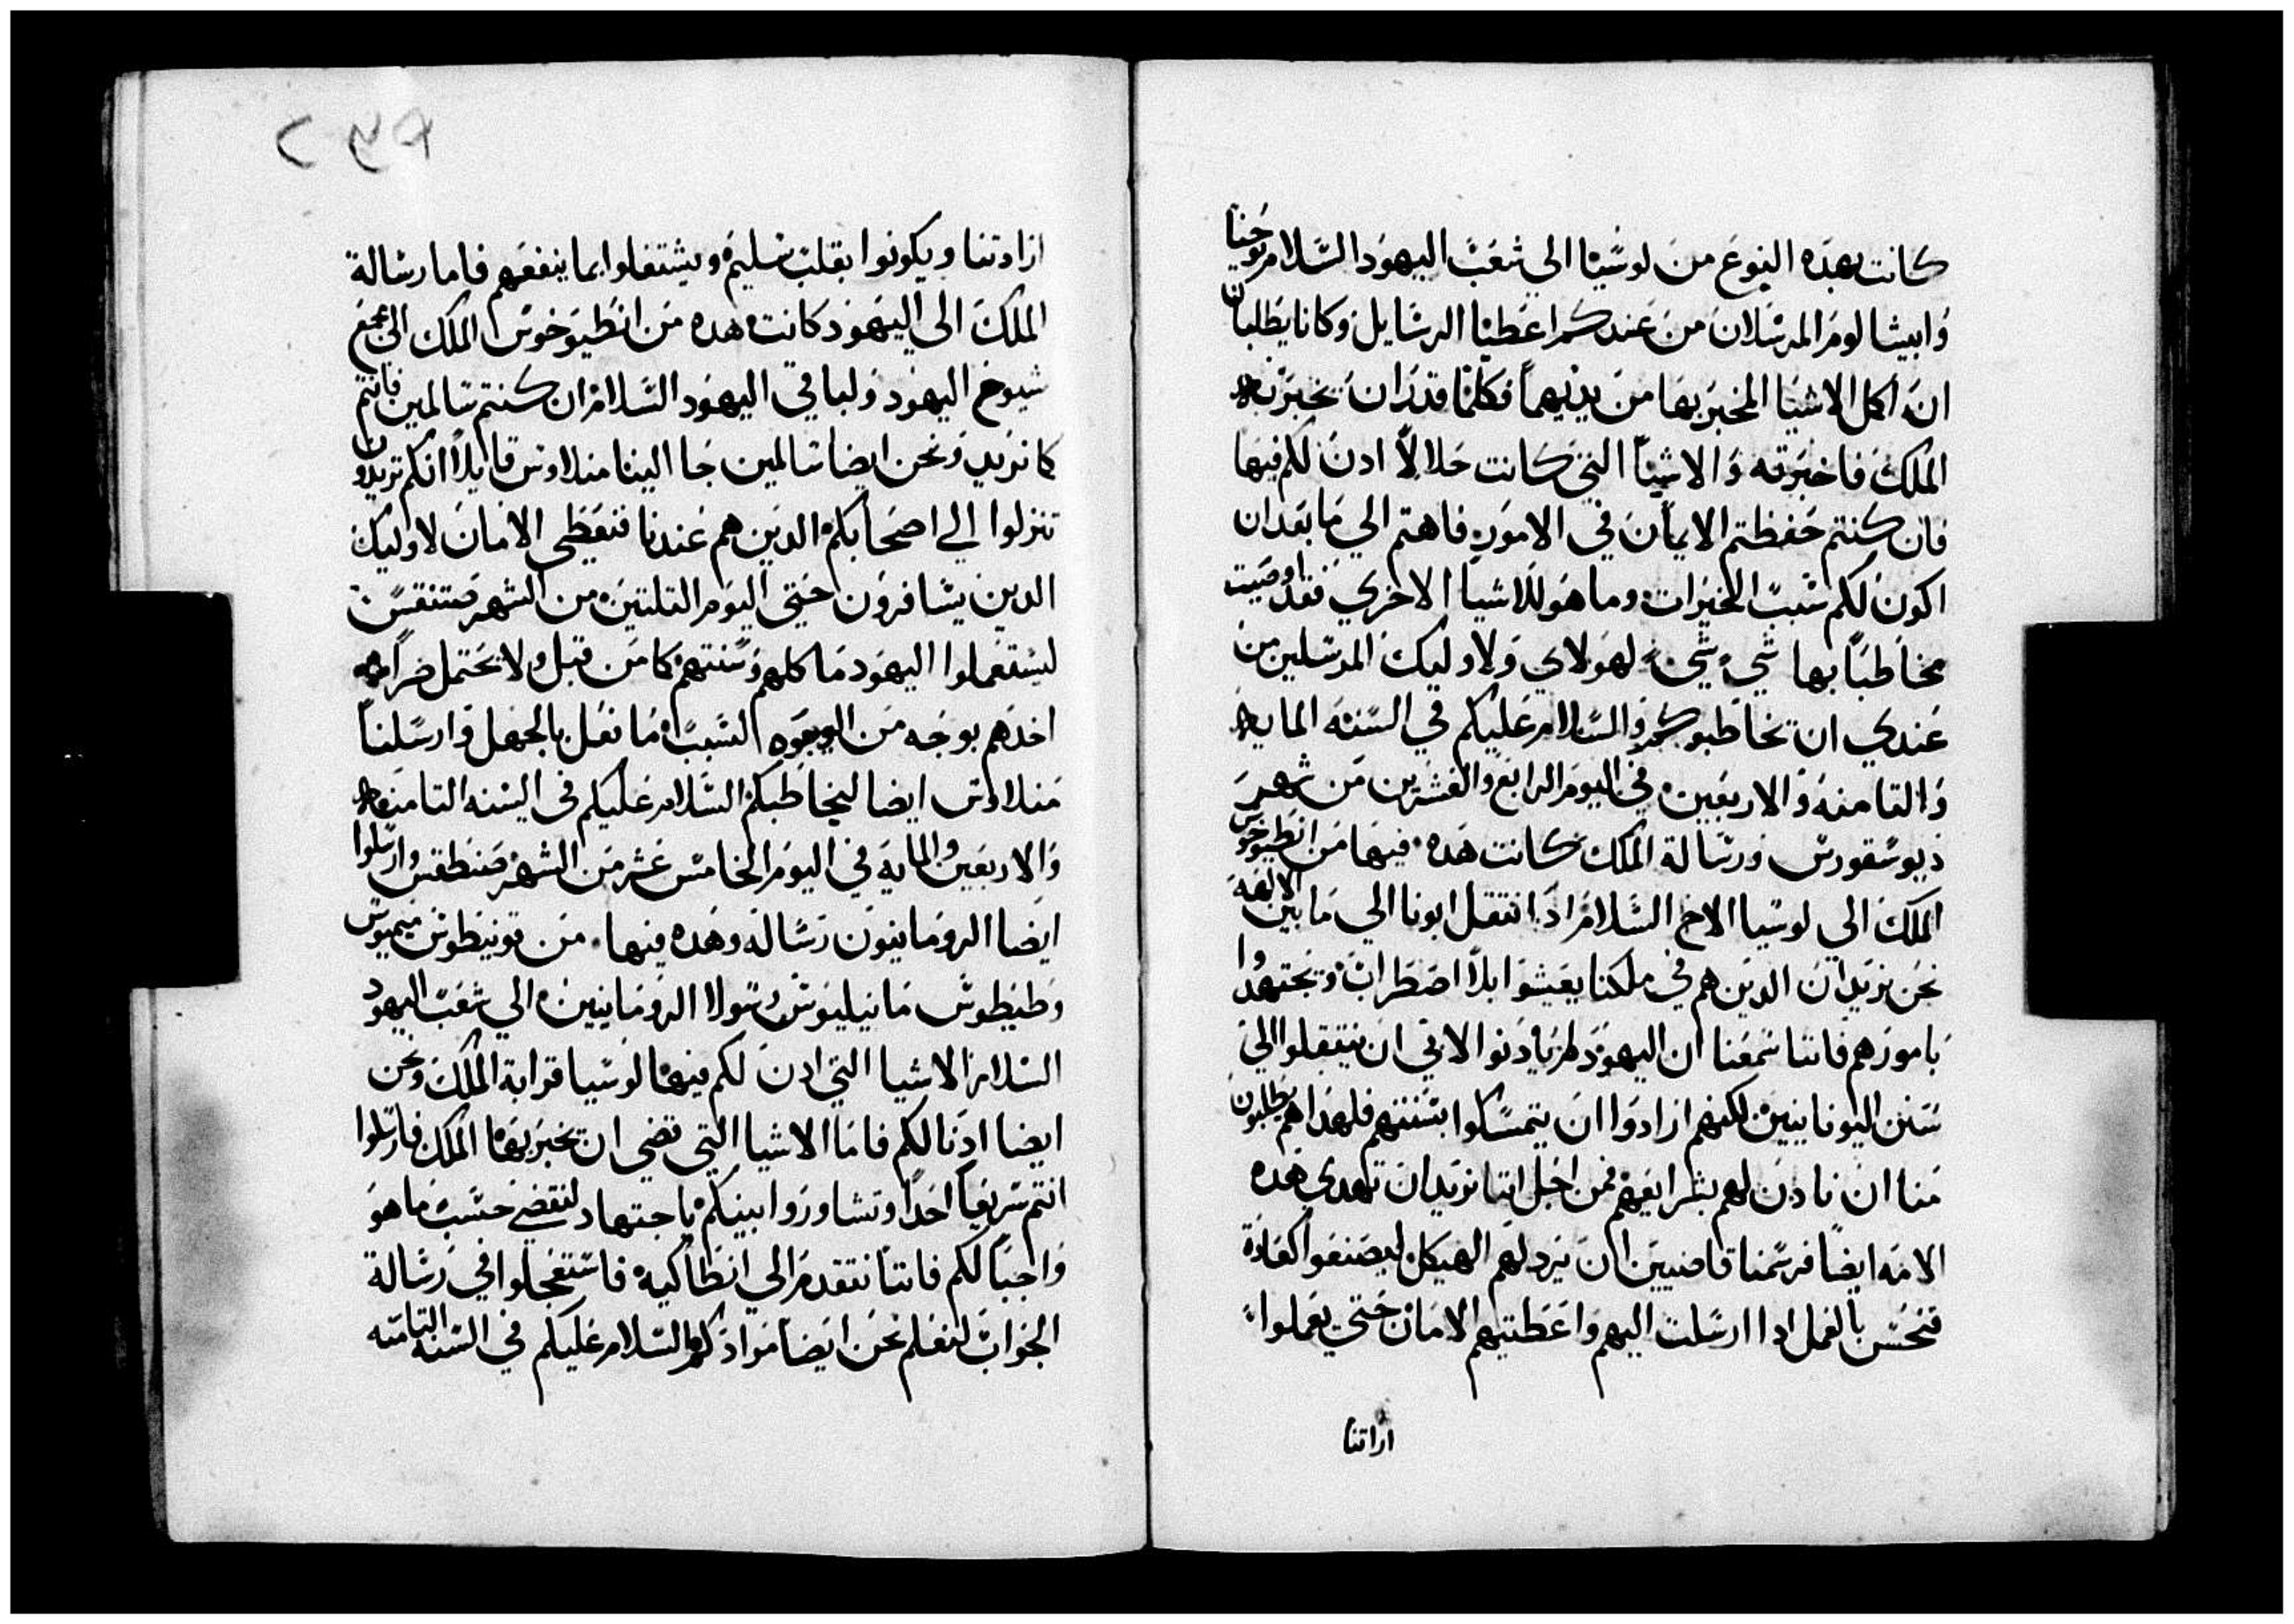 كانت بهده النوع من لوسيا الي شعب اليهود السلام يوحنا
وابيشا لوم المرسلان من عندكم اعطيا الرسايل وكانا يطلبان
ان اكمل الاشيا المخبر بها من يديهما فكلما قدر ان تخبر به
الملك فاخبرته والاشيا التي كانت حلالاً ادن لكم فيها
فان كنتم حفظتم الايمان في الامور فاهتم الي ما بعد ان
اكون لكم سبب الخيرات وما هو للاشيا الاخري فقد اوصيت
مخاطباً بها شي شي لهولاي ولاوليك المرسلين من
عندي ان تخاطبوكم والسلام عليكم في السنه المايه
والتامنه والاربعين في اليوم الرابع والعشرين من شهر
ديوسقورس ورسالة الملك كانت هده فيها من انطيوخوس
الملك الي لوسيا الاخ السلام اد انتقل ابونا الي ما بين الالهه
نحن نريد ان الدين هم في ملكنا يعيشوا بلا اضطراب ويجتهدوا
بامورهم فاننا سمعنا ان اليهود لم يادنوا لابي ان ينتقلوا الي
سنن اليونانيين لكنهم ارادوا ان يتمسكوا بسننهم فلهدا هم يطلبون
منا ان نادن لهم بشرايعهم فمن اجل اننا نريد ان تهدي هده
الامه ايضاً فرسمنا قاضيين ان يرد لهم الهيكل ليصنعوا كعادة
فتحسن بالعمل ادا ارسلت اليهم واعطتيهم الامان حتي يعملوا
اراتنا
ارادتنا ويكونوا بقلب سليم ويشتغلوا بما ينفعهم فاما رسالة
الملك الي اليهود كانت هده من انطيوخوس الملك الي جميع
شيوخ اليهود ولباقي اليهود السلام ان كنتم سالمين فانتم
كما نريد ونحن ايضا سالمين جا الينا منلاوس قايلاً انكم تريدون
تنزلوا الي اصحابكم الدين هم عندنا فنعطي الامان لاوليك
الدين يسافرون حتي اليوم التلتين من الشهر
ليستعملوا اليهود ماكلهم وسننهم كما من قبل ولا يحتمل ضراً
احدهم بوجه من الوجوه لسبب ما فعل بالجهل وارسلنا
منلاوس ايضا ليخاطبكم السلام عليكم في السنه التامنه
والاربعين والمايه في اليوم الخامس عشر من الشهر وارسلوا
ايضا الرومانيون رساله وهده فيها من قونيطوس ميميوس
وطيطوس مانيليوس رسولا الرومانيين الي شعب اليهود
السلام الاشيا التي ادن لكم فيها لوسيا قرابة الملك ونحن
ايضا ادنا لكم فاما الاشيا التي قضي ان تخبر بها الملك فارسلوا
انتم سريعاً احداً وتشاوروا بينكم باجتهاد لنقضي حسب ما هو
واجباً لكم فاننا نتقدم الي انطاكيه فاستعجلوا في رسالة
الجواب لنعلم نحن ايضا مرادكم والسلام عليكم في السنه التامنه